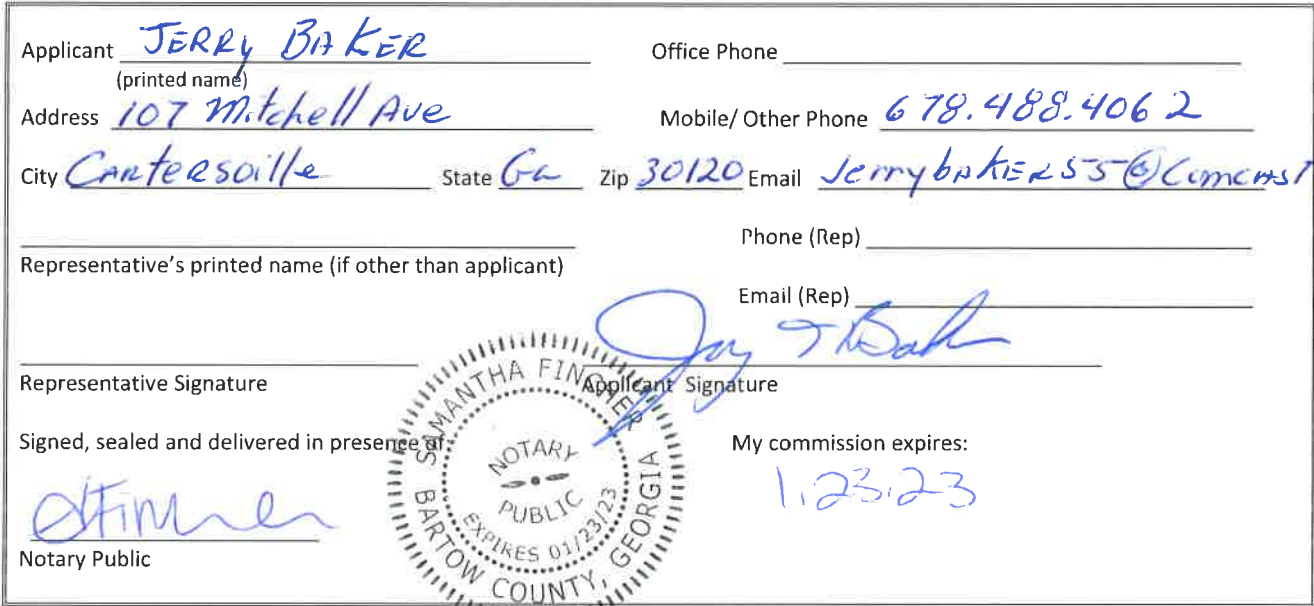 Applicant JERRY BAKER Office Phone
(printed name)
Address 107 Mitchell Ave Mobile/ Other Phone 678.488.4062
City Cartersville State Ga Zip 30120 Email Jerrybaker55@Comcast
Phone (Rep)
Representative's printed name (if other than applicant)
Email (Rep)
Jerry T Baker
Representative Signature Applicant Signature
Signed, sealed and delivered in presence of: My commission expires:
1.23.23
SFincher
Notary Public
SAMANTHA FINCHER
NOTARY
PUBLIC
EXPIRES 01/23/23
BARTOW COUNTY, GEORGIA